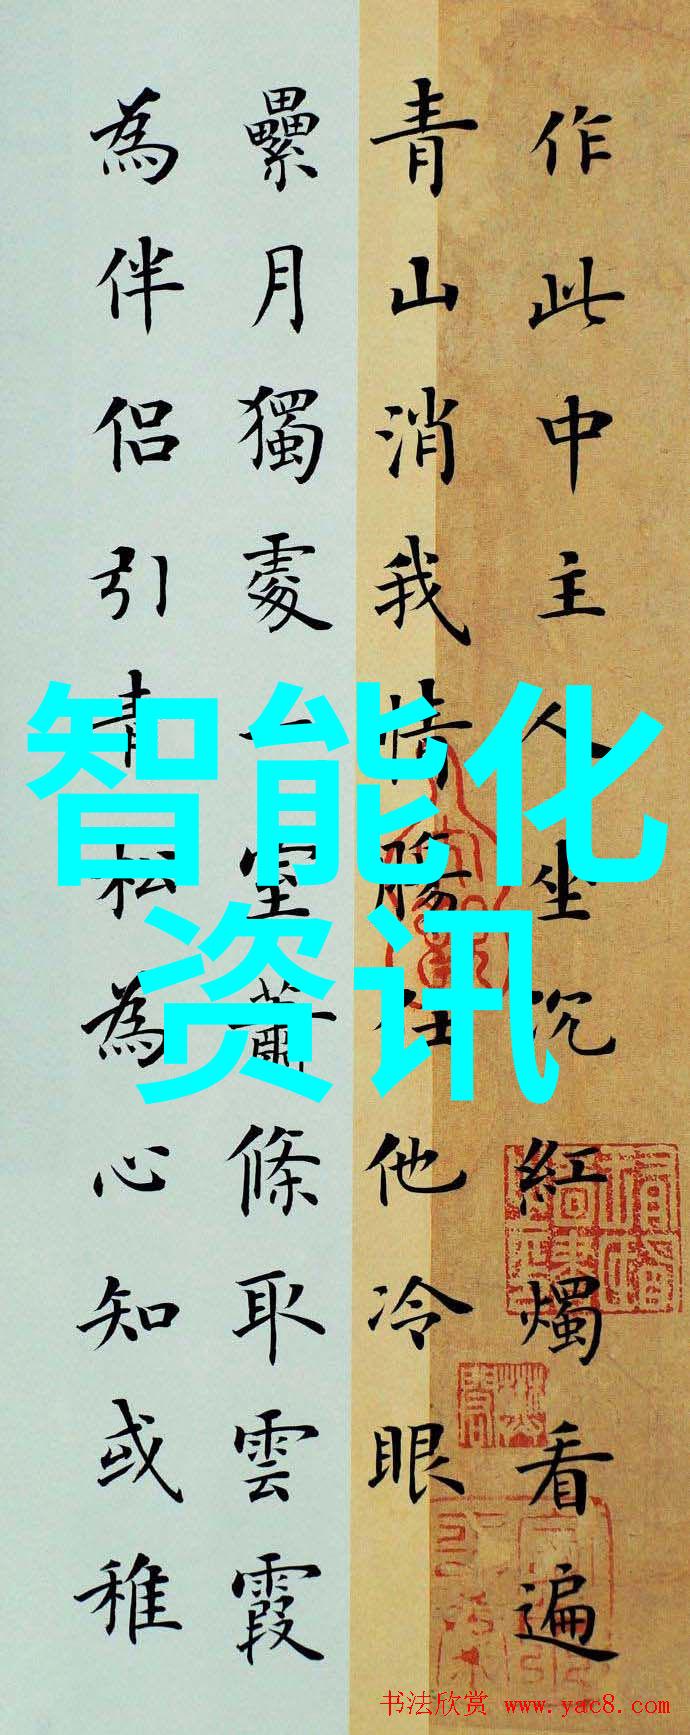 作此中主人坐沉紅燭看遍
青山消我情腸任他冷眼
纍月獨處一室蕭條取雲霞
為伴侶引青松為心知或稚
智能化
资讯
书法欣赏 www.yac8.com